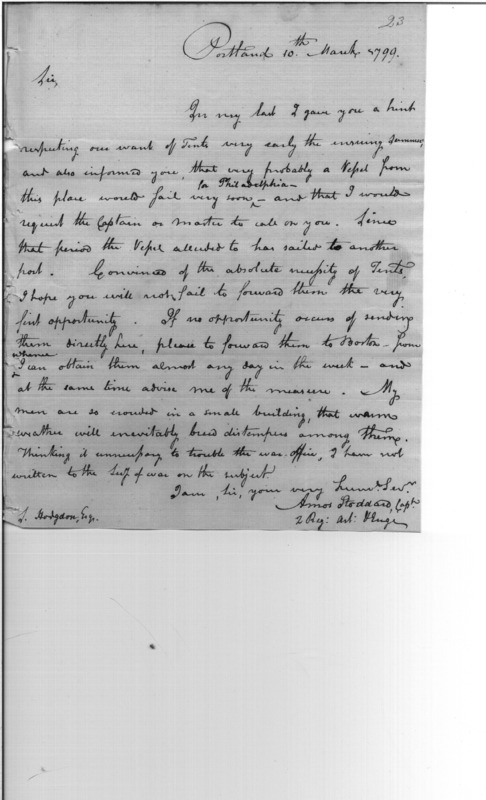 23
Portland 10.th March 1799.
Sir,
In my last I gave you a hint
respecting our want of Tents very early the ensuing summer,
and also informed you, that very probably a Vessel from
this place would sail very soon to Philadelphia - and that I would
request the Captain or master to call on you. Since
that period the Vessel alluded to has sailed to another
port. Convinced of the absolute necessity of Tents,
I hope you will not fail to forward them the very
first opportunity. If no opportunity occurs of sending
them directly here, please to forward them to Boston - from
whence I can obtain them almost any day in the week - and
at the same time advise me of the measure. My
men are so crouded in a small building, that warm
weather will inevitably breed distempers among them.
Thinking it unnecessary to trouble the war office, I have not
written to the Secy. of war on the subject.
I am, Sir, your very hume. Servt.
Amos Stoddard, Capt.
2 Reg: Art: & Engr
S. Hodgdon, Esqr.